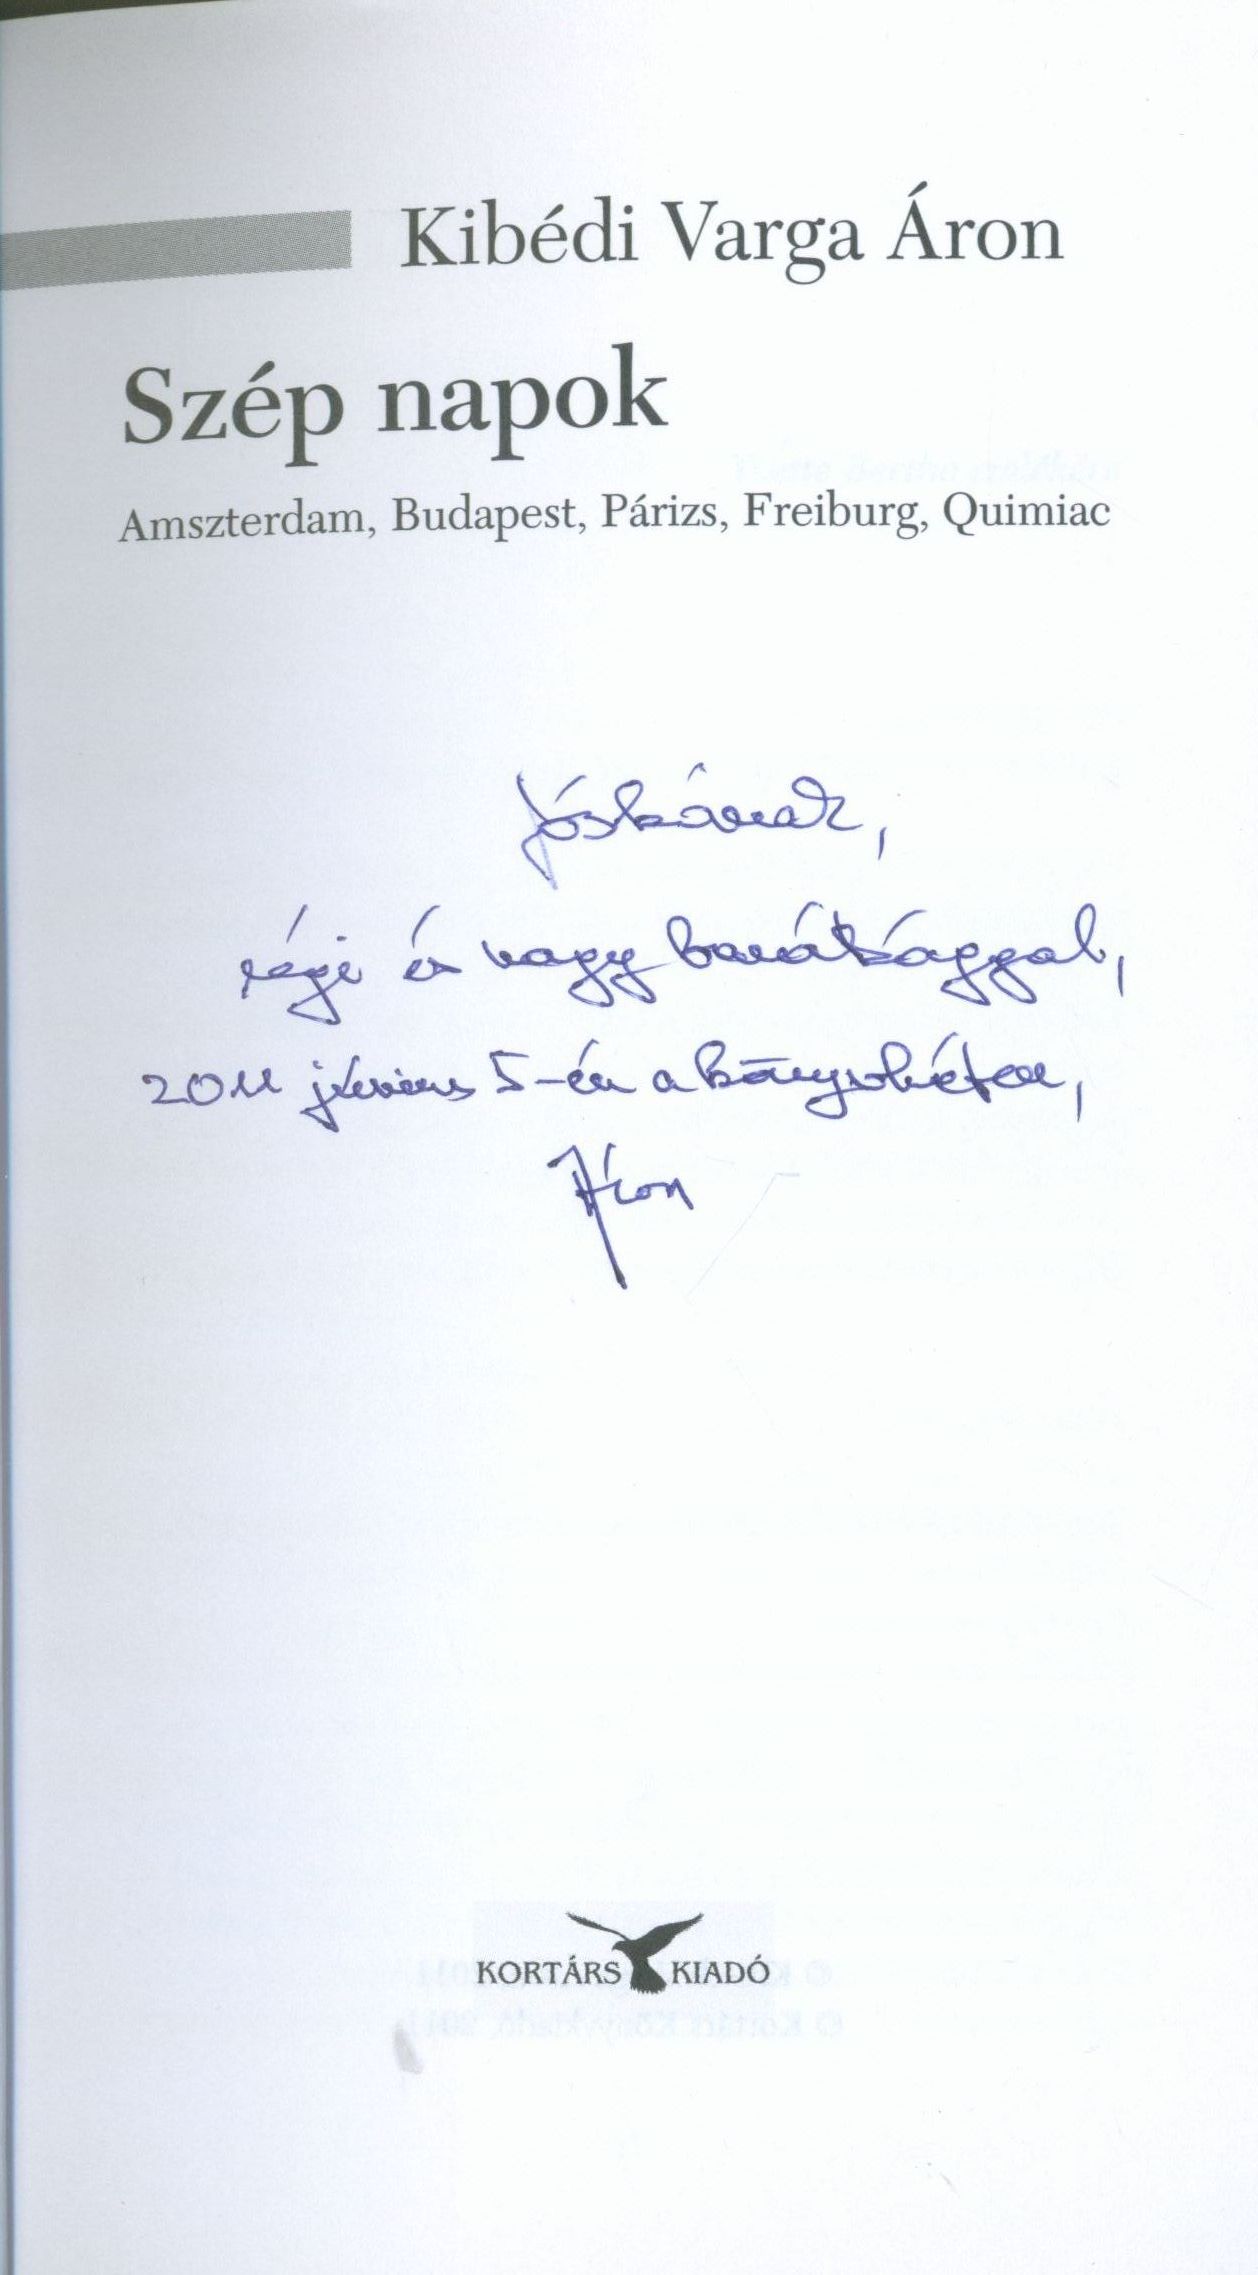 Kibédi Varga Áron
Szép napok
Amszterdam, Budapest, Párizs, Freiburg, Quimiac
Jóskának,
régi és nagy barátsággal,
2011 június 5-én a könyvhéten,
Áron
KORTÁRS KIADÓ